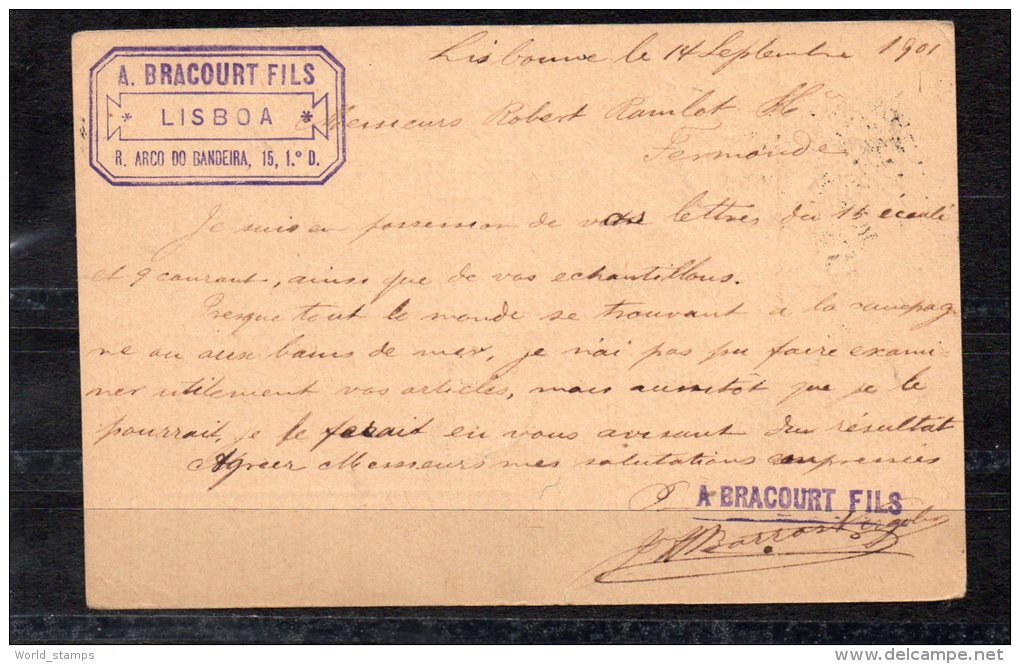 A. BRACOURT FILS
* LISBOA *
R. ARCO DO BANDEIRA, 15, 1.º D.
Lisbonne le 14 Septembre 1901
Messieurs Robert Ramlot
Termonde
Je suis en possession de vos lettres du 15 ecoulé
et 9 courant, ainsi que de vos echantillons.
Presque tout le monde se trouvant a la campag
ne ou aux bains de mer, je n'ai pas pu faire exami-
ner utilement vos articles, mais aussitôt que je le
pourrait, je le ferait en vous avisant du résultat
Agréer Messieurs mes salutations empressées
P. A BRACOURT FILS
World_stamps
delcampe.net